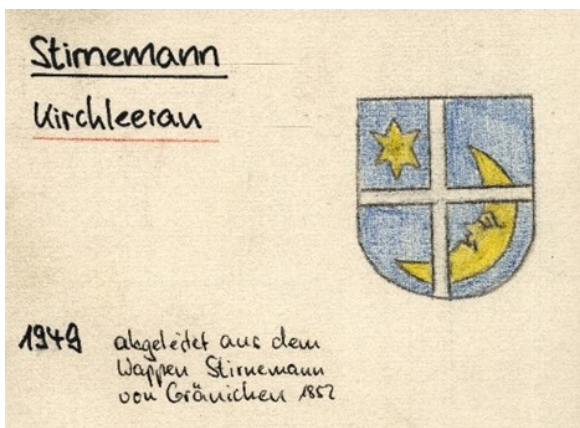 Stirnemann
Kirchleerau
1949 abgeleitet aus dem
Wappen Stirnemann
von Gränichen 1852